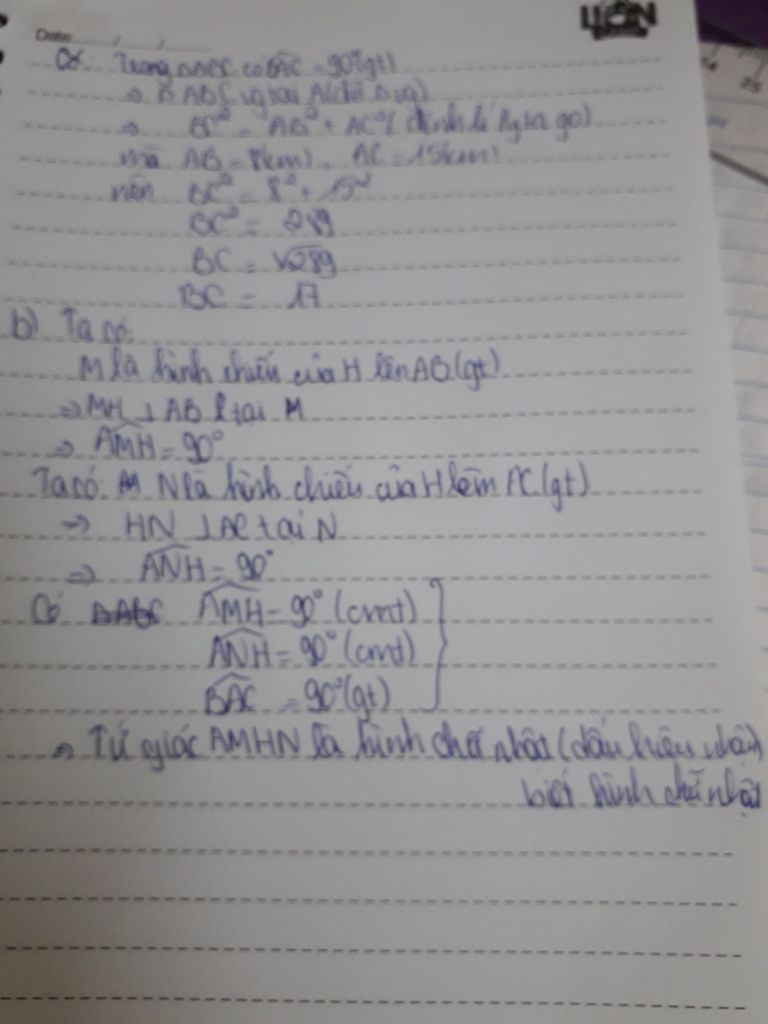 Date: / /
LION
a. Trong ΔABC có BAC = 90°(gt)
⇒ ΔABC vg tại A (đ/n Δ vg)
⇒ BC² = AB² + AC² (định lí Pytago)
mà AB = 8(cm), AC = 15(cm)
nên BC² = 8² + 15²
BC² = 289
BC = √289
BC = 17
b) Ta có:
M là hình chiếu của H lên AB(gt)
⇒ MH ⊥ AB tại M
⇒ AMH = 90°
Ta có N là hình chiếu của H lên AC (gt)
⇒ HN ⊥ AC tại N
⇒ ANH = 90°
Có AMH = 90° (cmt)
ANH = 90° (cmt)
BAC = 90° (gt)
⇒ Tứ giác AMHN là hình chữ nhật (dấu hiệu nhận
biết hình chữ nhật